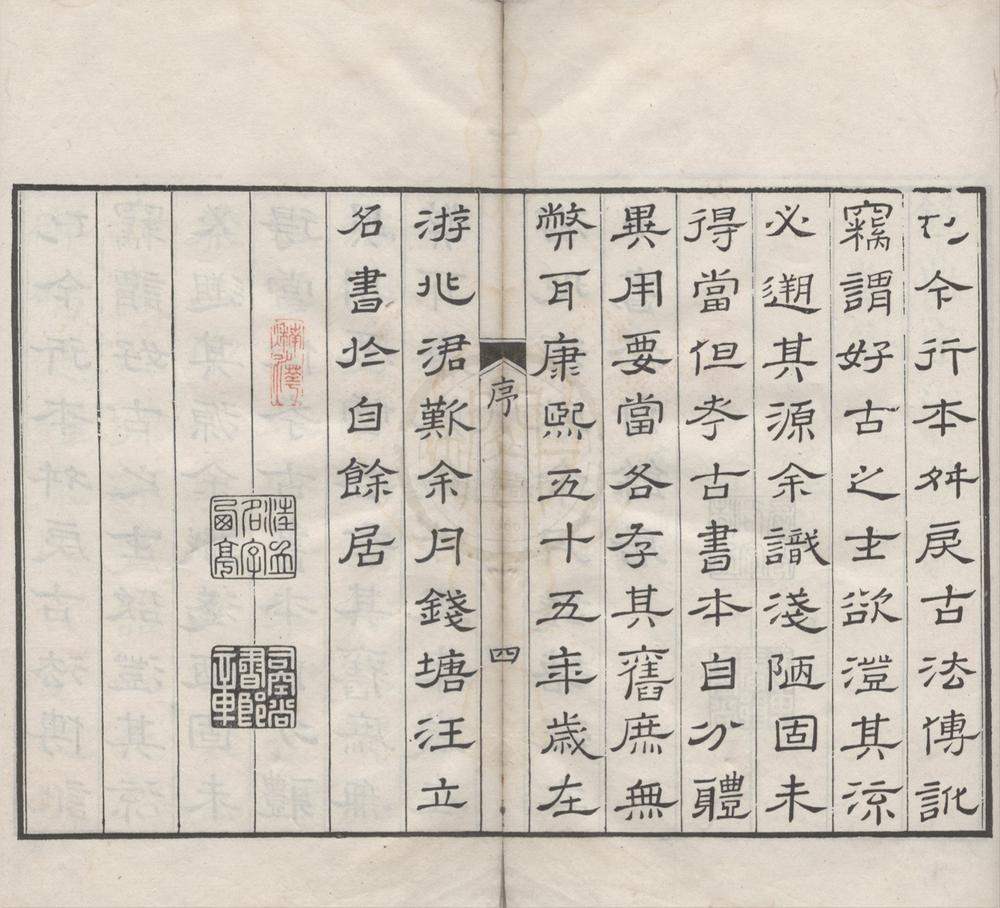 今行本舛戾古法傳訛
竊謂好古之士欲澄其流
必遡其源余識淺陋固未
得當但考古書本自分體
異用要當各存其舊庶無
弊耳康熙五十五年歲在
序 四
游兆涒歎余月錢塘汪立
名書於自餘居
汪立名字西亭